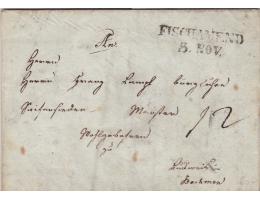 FISCHAMEND
5. NOV.
An
Herrn
Herrn Franz Lampl bürgl:
Seifensieder Meister 12
Wohlgeboren
zu
Budweis
Boehmen